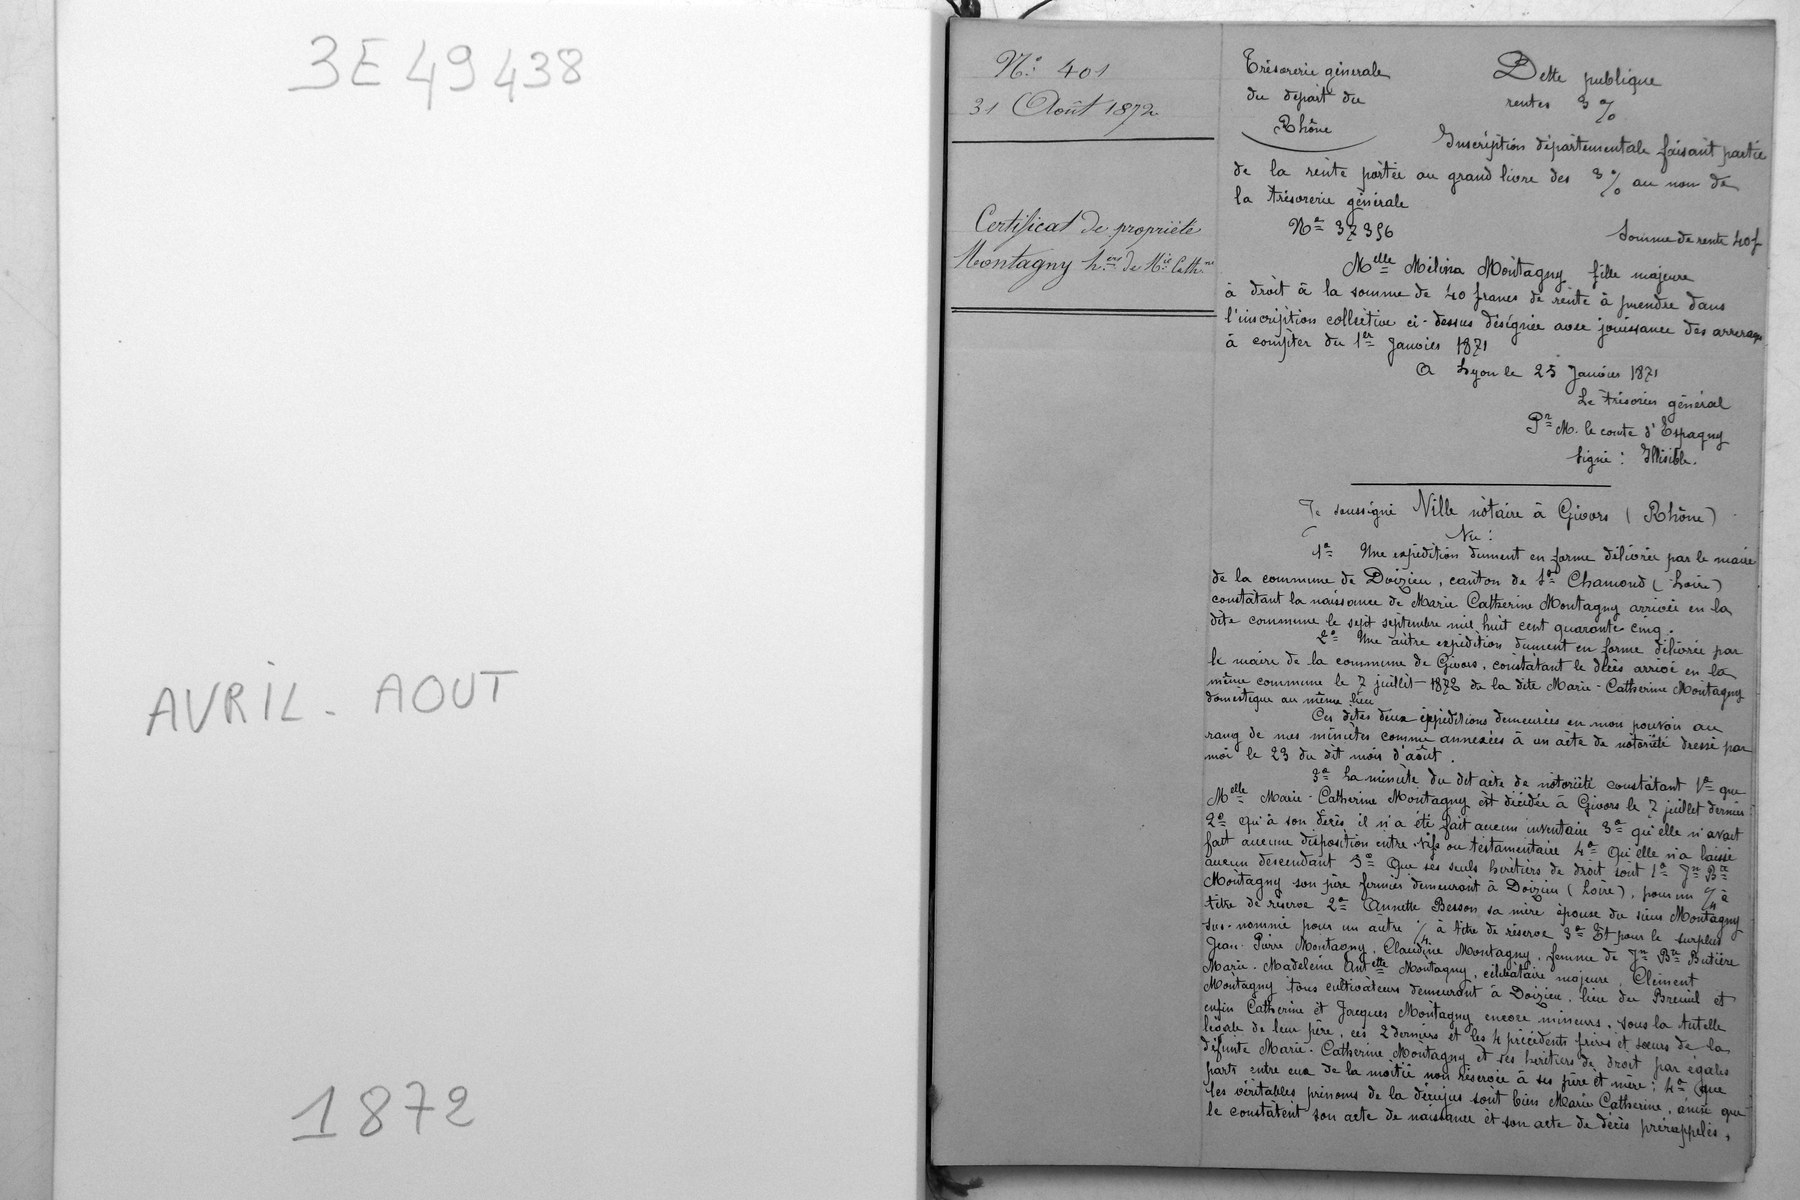 3E 49 438
AVRIL - AOUT
1872
N.° 401
31 Août 1872
Certificat de propriété
Montagny h.ers de M.ie Cath.ne
Trésorerie génerale
du départ du
Rhône
Dette publique
rentes 3 %
Inscription départementale faisant partie
de la rente portée au grand livre des 3 % au nom de
la trésorerie générale
N° 37356
Somme de rente 40f
Melle Mélina Montagny fille majeure
à droit à la somme de 40 francs de rente à prendre dans
l'inscription collective ci-dessus désignée avec jouissance des arrerages
à compter du 1er Janvier 1871
A Lyon le 25 Janvier 1871
Le trésorier général
Pr M. le comte d'Espagny
Signé : Illisible.
Je soussigné Nille nôtaire à Givors ( Rhône )
Vu :
1° Une expédition dument en forme délivrée par le maire
de la commune de Doizieu, canton de St Chamond ( Loire )
constatant la naissance de Marie Catherine Montagny arrivée en la
dite commune le sept septembre mil huit cent quarante cinq.
2° Une autre expédition dument en forme délivrée par
le maire de la commune de Givors, constatant le décès arrivé en la
même commune le 7 juillet 1872 de la dite Marie-Catherine Montagny
domestique au même lieu
Ces dites deux éxpéditions demeurées en mon pouvoir au
rang de mes minutes comme annexées à un acte de notoriété dressé par
moi le 23 du dit mois d'août.
3° La minute du dit acte de notoriété constatant 1° que
Melle Marie-Catherine Montagny est décédée à Givors le 7 juillet dernier
2° qu'à son décès il n'a été fait aucun inventaire 3° qu'elle n'avait
fait aucune disposition entre-vifs ou testamentaire 4° Qu'elle n'a laissé
aucun descendant 5° Que ses seuls heritiers de droit sont 1° Jn Bte
Montagny son père fermier demeurant à Doizieu ( Loire ), pour un 1/4 à
titre de réserve 2° Annette Besson sa mère épouse du sieur Montagny
sus-nommé pour un autre 1/4 à titre de réserve 3° Et pour le surplus
Jean-Pierre Montagny, Claudine Montagny, femme de Jn Bte Butière
Marie-Madeleine Antelle Montagny, célibataire majeure, Clément
Montagny tous cultivateurs demeurant à Doizieu, lieu du Breuil et
enfin Catherine et Jacques Montagny encore mineurs, sous la tutelle
légale de leur père, ces 2 derniers et les 4 précédents frères et sœurs de la
défunte Marie-Catherine Montagny et ses heritiers de droit par égales
parts entre eux de la moitié non réservée à ses père et mère ; 4° que
les véritables prénoms de la déçujus sont bien Marie Catherine, ainsi que
le constatent son acte de naissance et son acte de décès prérappelés,